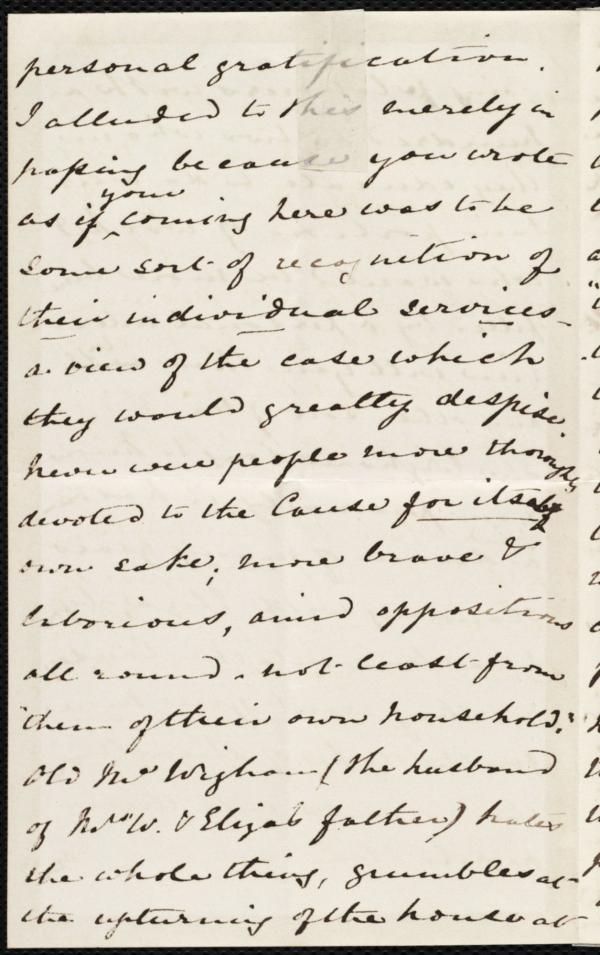 personal gratification.
I alluded to this merely in
passing because you wrote
your
as if coming here was to be
some sort of recognition of
their individual services -
a view of the case which
they would greatly despise.
Never were people more thoroughly
devoted to the Cause for its
own sake; more brave &
laborious, amid oppositions
all round - not least from
"them of their own household."
Old Mr Wigham (the husband
of Mrs W. & Eliza's father) hates
the whole thing, grumbles at
the upturning of the house at